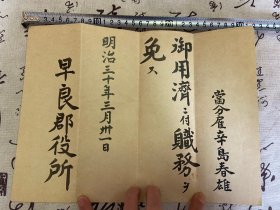 當分雇辛島春雄
御用濟ニ付職務ヲ
免ス
明治三十年三月卅一日
早良郡役所